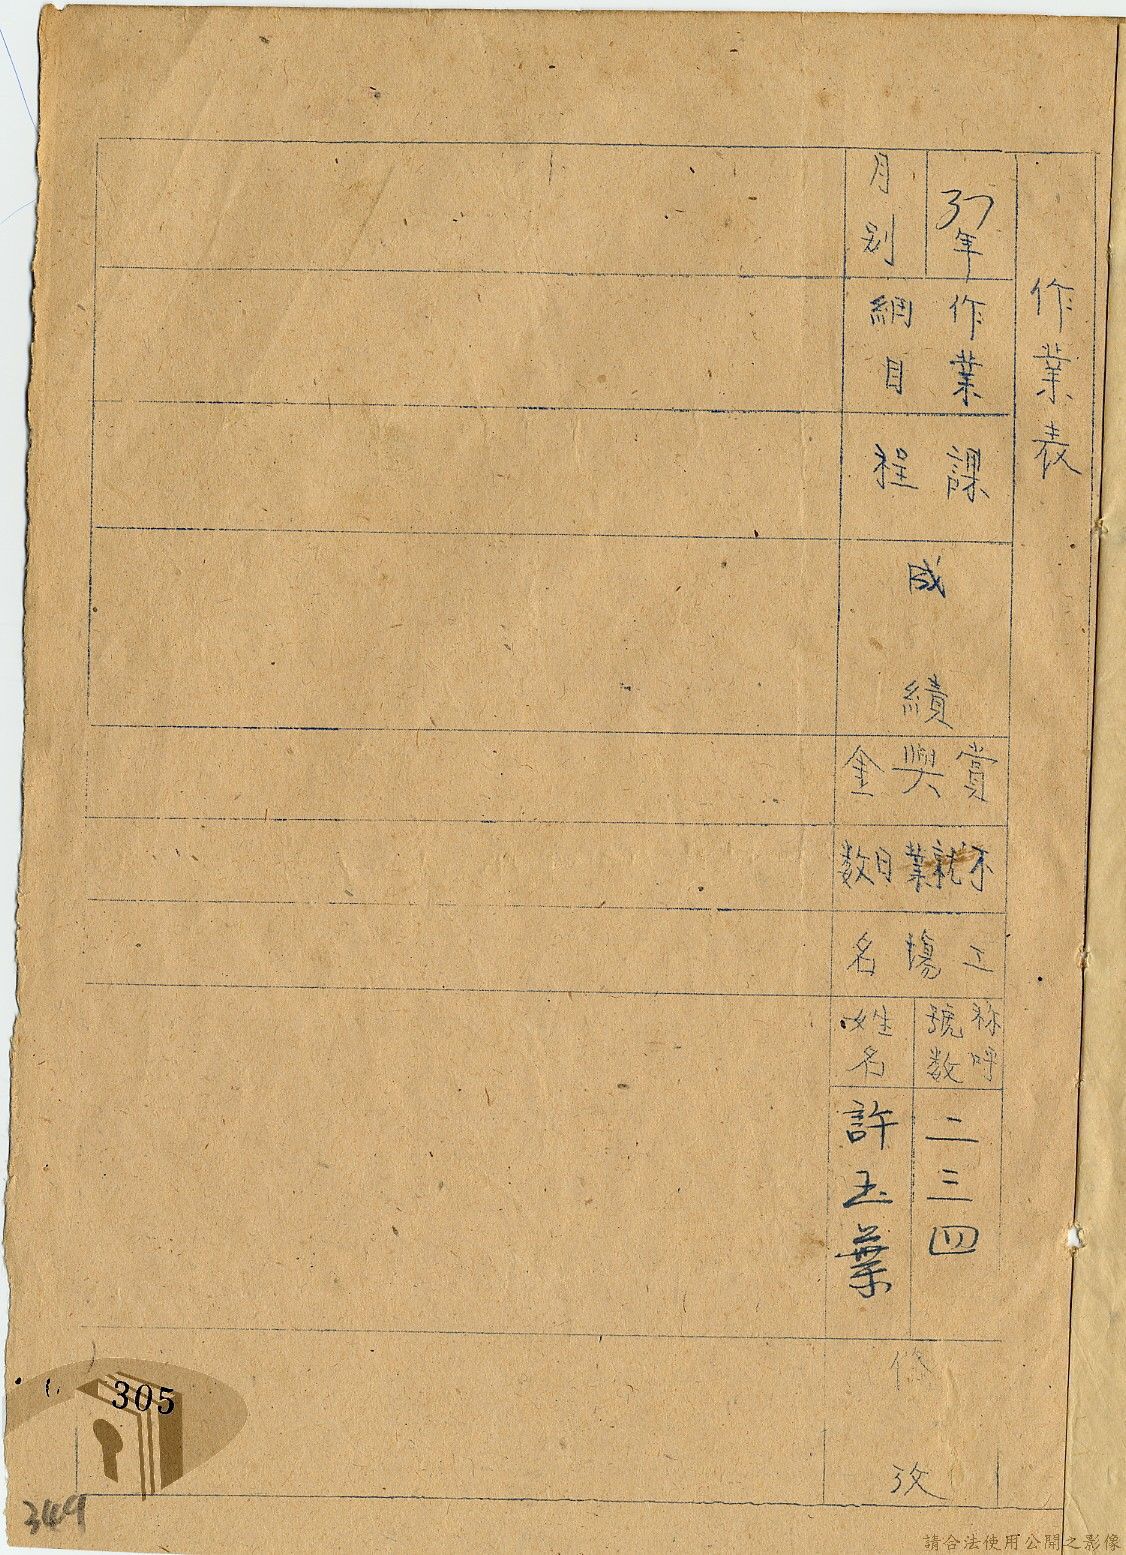 作業表
37年
月別
作業
網目
課
程
成績
賞與金
不就業日数
工場名
称呼
號数
二三四
姓名
許玉葉
305
349
請合法使用公開之影像